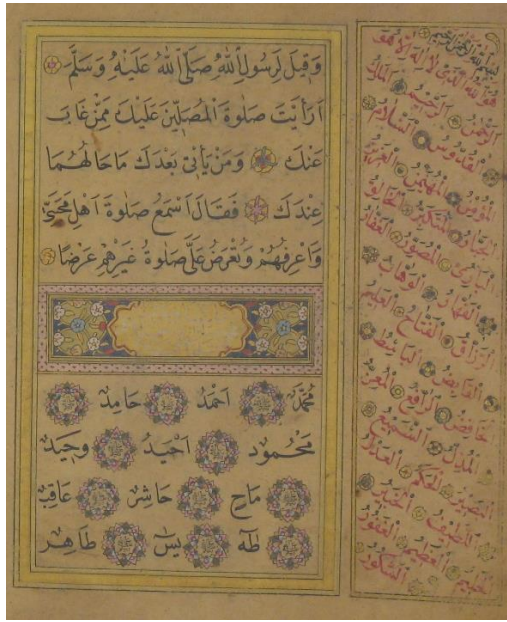 وَقِيلَ لِرَسُولِ اللّٰهِ صَلَّى اللّٰهُ عَلَيْهِ وَسَلَّمَ
اَرَاَيْتَ صَلٰوةَ الْمُصَلّ۪ينَ عَلَيْكَ مِمَّنْ غَابَ
عَنْكَ وَمَنْ يَأْت۪ى بَعْدَكَ مَا حَالُهُمَا
عِنْدَكَ فَقَالَ اَسْمَعُ صَلٰوةَ اَهْلِ مَحَبَّت۪ى
وَاَعْرِفُهُمْ وَتُعْرَضُ عَلَىَّ صَلٰوةُ غَيْرِهِمْ عَرْضًا
مُحَمَّدٌ اَحْمَدُ حَامِدٌ
مَحْمُودٌ اَح۪يدُ وَح۪يدٌ
مَاحٍ حَاشِرٌ عَاقِبٌ
طٰهٰ يٰسٓ طَاهِرٌ
بسم الله الرحمن الرحيم
هُوَ اللّٰهُ الَّذ۪ى لَا اِلٰهَ اِلَّا هُوَ
الرَّحْمٰنُ الرَّح۪يمُ الْمَلِكُ
الْقُدُّوسُ السَّلَامُ
الْمُؤْمِنُ الْمُهَيْمِنُ الْعَز۪يزُ
الْجَبَّارُ الْمُتَكَبِّرُ الْخَالِقُ
الْبَارِئُ الْمُصَوِّرُ الْغَفَّارُ
الْقَهَّارُ الْوَهَّابُ
الرَّزَّاقُ الْفَتَّاحُ الْعَل۪يمُ
الْقَابِضُ الْبَاسِطُ
الْخَافِضُ الرَّافِعُ الْمُعِزُّ
الْمُذِلُّ السَّم۪يعُ
الْبَص۪يرُ الْحَكَمُ الْعَدْلُ
اللَّط۪يفُ الْخَب۪يرُ
الْحَل۪يمُ الْعَظ۪يمُ الْغَفُورُ
الشَّكُورُ